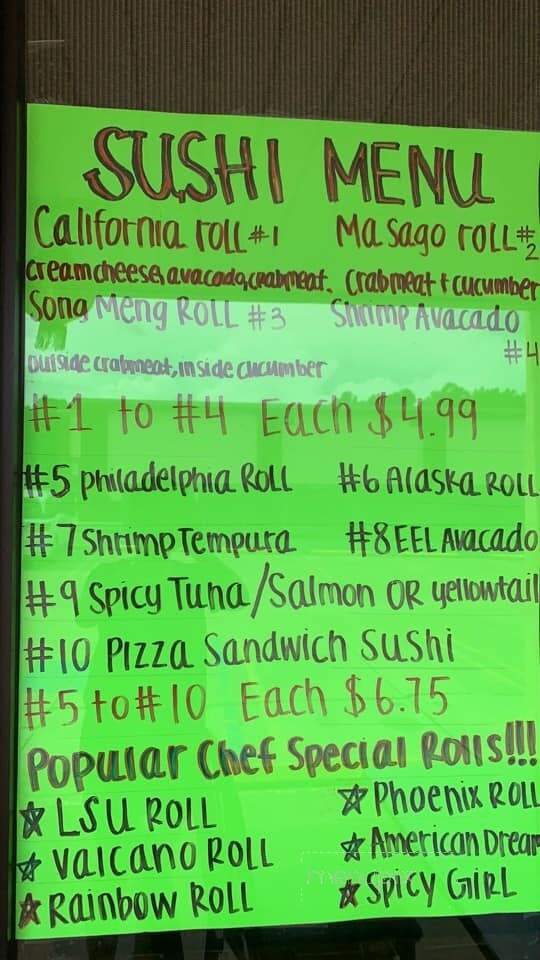 SUSHI MENU
California roll #1 Masago roll #2
creamcheese, avacado, crabmeat. Crabmeat + cucumber
Song Meng Roll #3 Shrimp Avacado #4
outside crabmeat, inside cucumber
#1 to #4 Each $4.99
#5 philadelphia Roll #6 Alaska Roll
#7 Shrimp Tempura #8 EEL Avacado
#9 Spicy Tuna/Salmon OR yellowtail
#10 Pizza Sandwich Sushi
#5 to #10 Each $6.75
Popular Chef Special Rolls!!!
☆ LSU ROLL ☆ Phoenix ROLL
☆ Valcano ROLL ☆ American Dream
☆ Rainbow ROLL ☆ Spicy GIRL